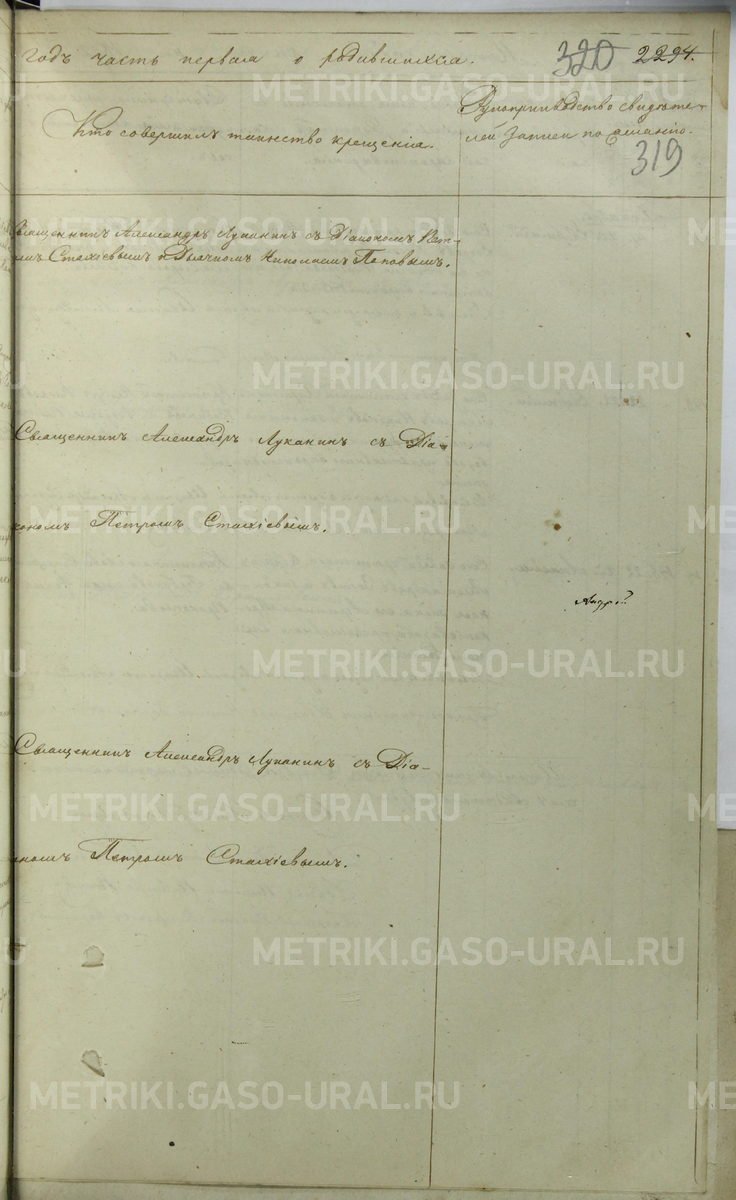 годъ часть первая о родившихся. 320 2294.
Кто совершилъ таинство крещенія.
Рукоприкладство свидѣте-
лей записи по желанію.
319
Священникъ Александръ Луканинъ съ Діакономъ Пет-
ромъ Стахіевымъ и Дьячкомъ Николаемъ Поповымъ.
Священникъ Александръ Луканинъ съ Діа-
кономъ Петромъ Стахіевымъ.
Священникъ Александръ Луканинъ съ Діа-
кономъ Петромъ Стахіевымъ.
METRIKI.GASO-URAL.RU
METRIKI.GASO-URAL.RU
METRIKI.GASO-URAL.RU
METRIKI.GASO-URAL.RU
METRIKI.GASO-URAL.RU
METRIKI.GASO-URAL.RU
METRIKI.GASO-URAL.RU
METRIKI.GASO-URAL.RU